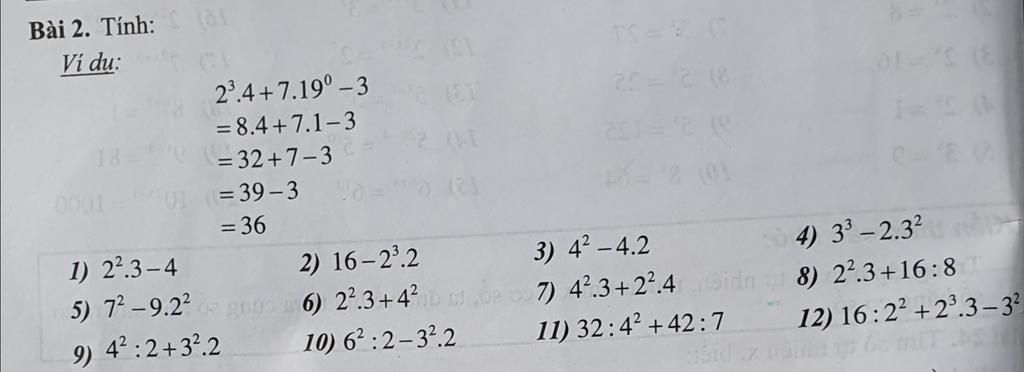 Bài 2. Tính:
Ví dụ:
2³.4+7.19⁰−3
=8.4+7.1−3
=32+7−3
=39−3
=36
1) 2².3−4 2) 16−2³.2 3) 4²−4.2 4) 3³−2.3²
5) 7²−9.2² 6) 2².3+4² 7) 4².3+2².4 8) 2².3+16:8
9) 4²:2+3².2 10) 6²:2−3².2 11) 32:4²+42:7 12) 16:2²+2³.3−3²